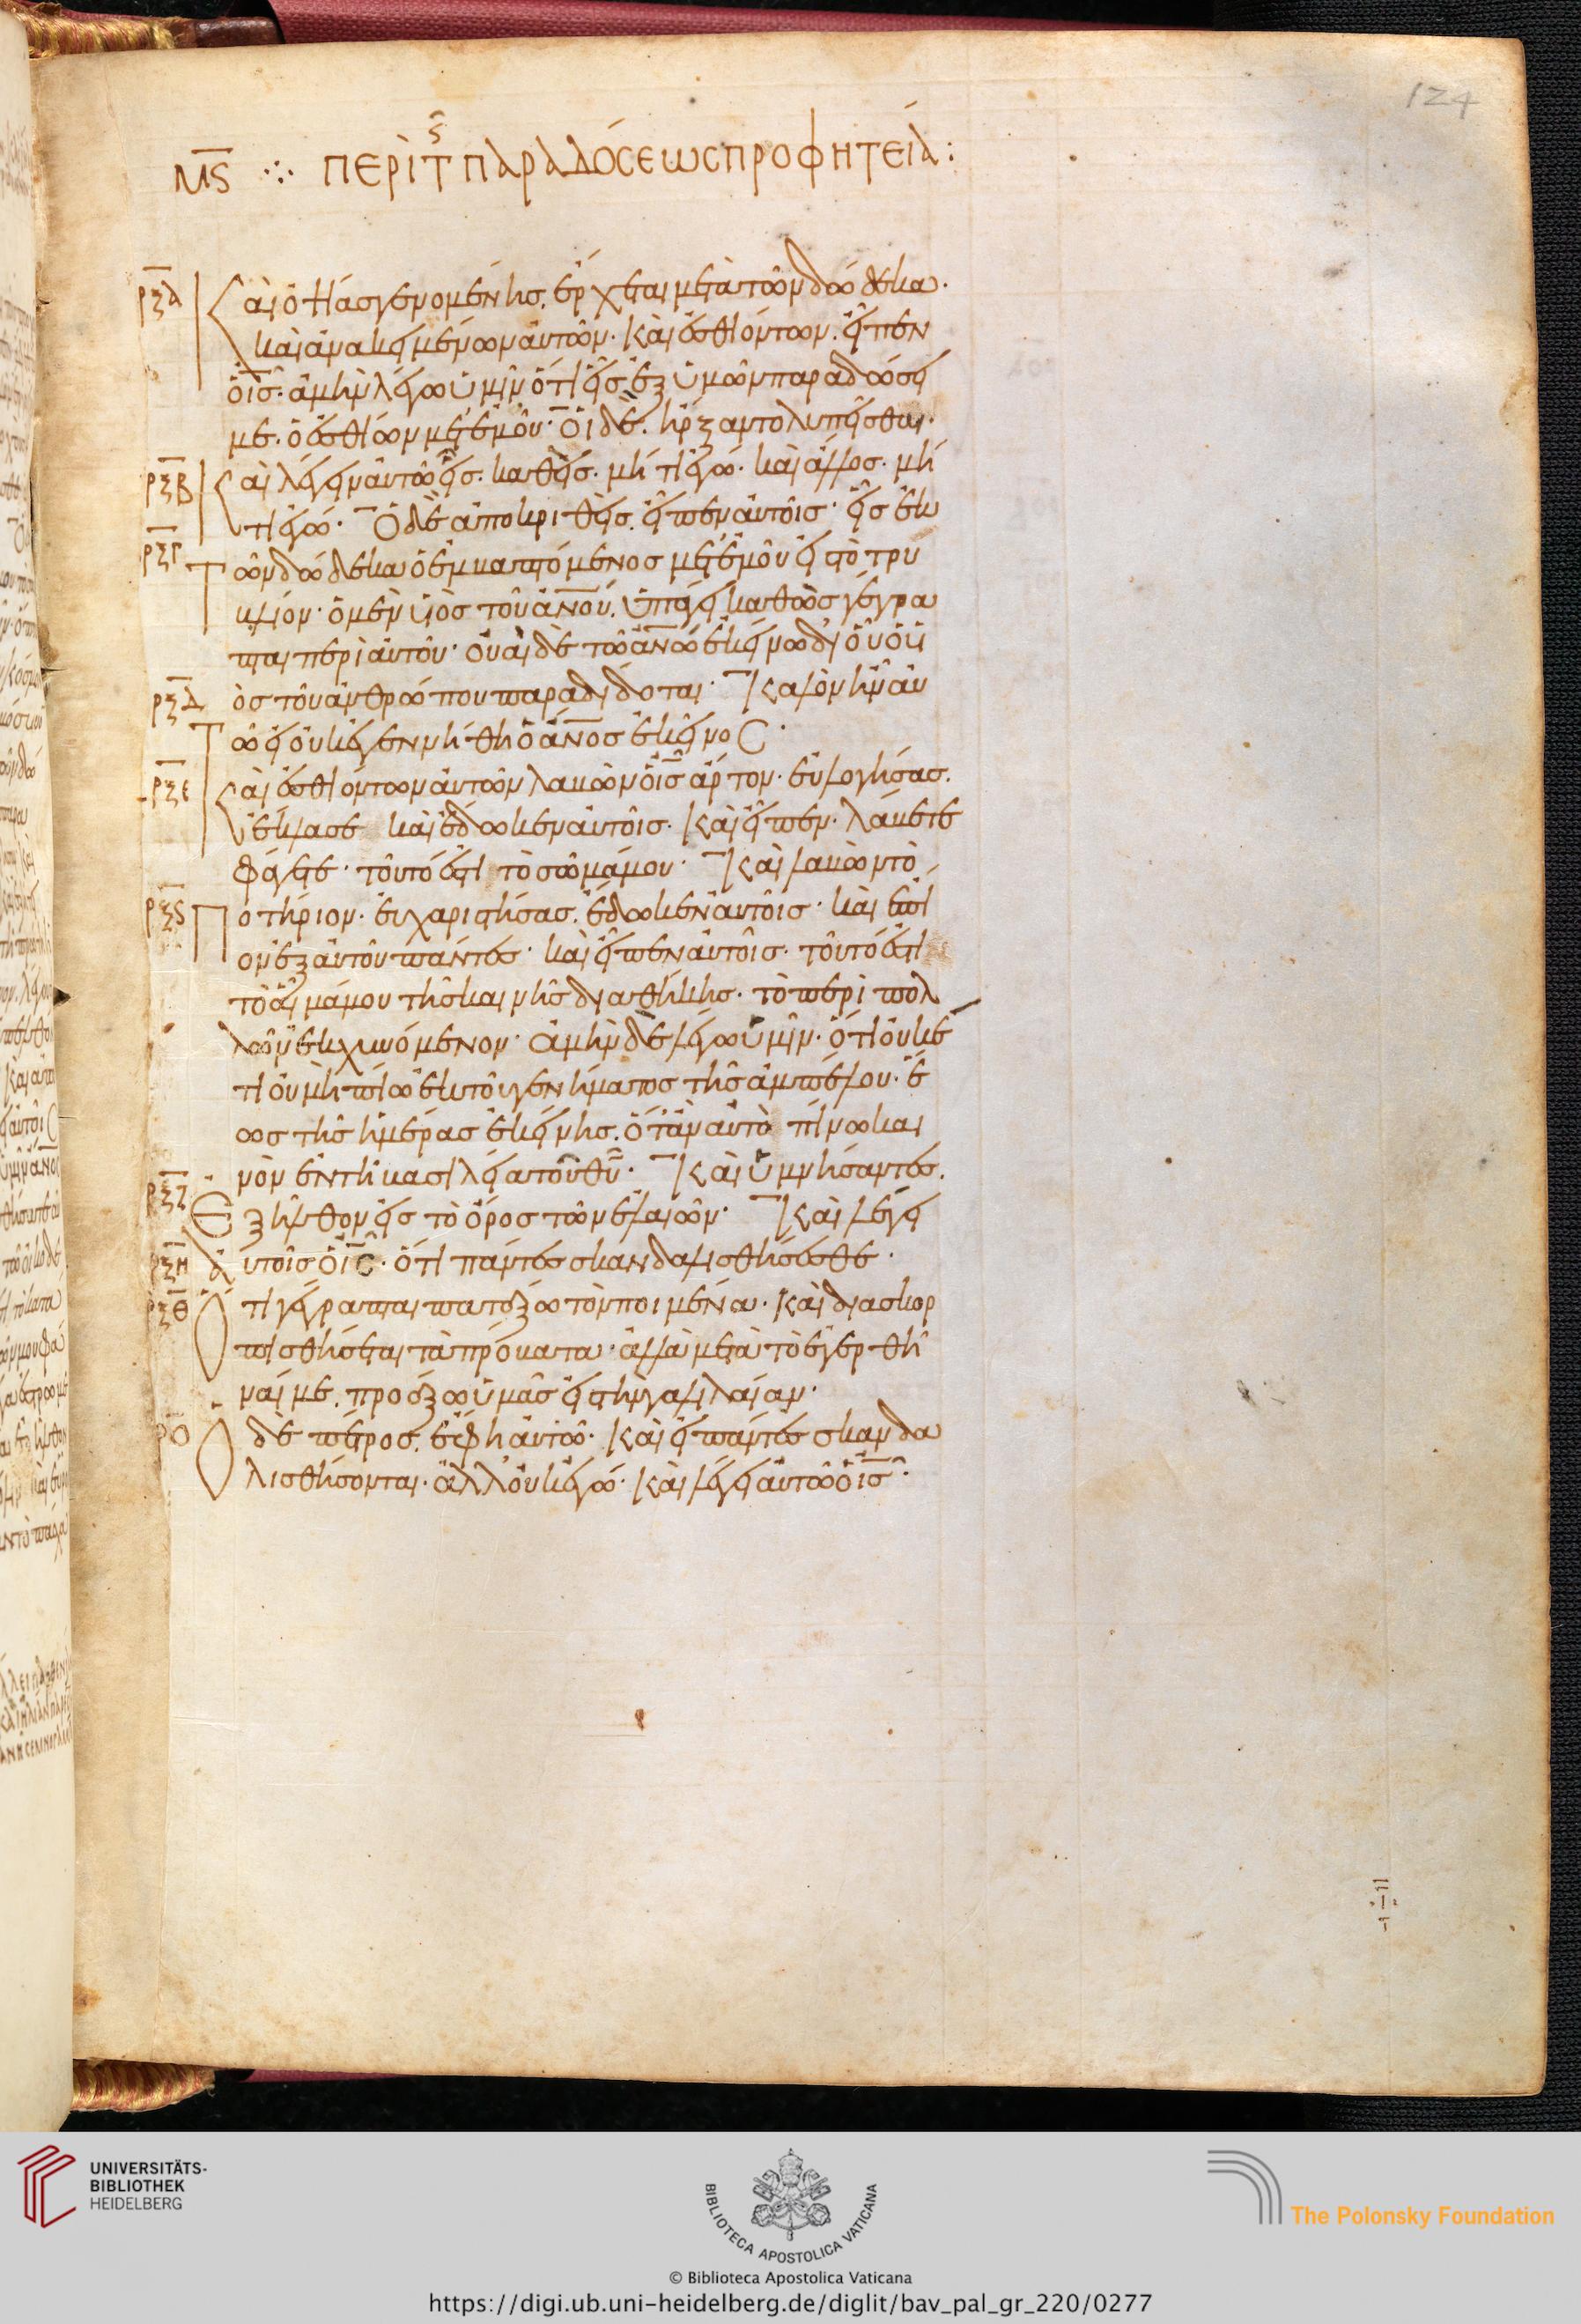 124
Μς ∴ ΠΕΡῚ Τ͂ς ΠΑΡΑΔΌΣΕΩΣ ΠΡΟΦΗΤΕΊΑ:
ρξα Καὶ ὀψίας γενομένης. ἔρχεται μετὰ τῶν δώδεκα.
καὶ ἀνακειμένων αὐτῶν. καὶ ἐσθιόντων. εἶπεν
ὁ ις. ἀμὴν λέγω ὑμῖν ὅτι εἷς ἐξ ὑμῶν παραδώσει
με. ὁ ἐσθίων μετ' ἐμοῦ. οἱ δὲ. ἤρξαντο λυπεῖσθαι.
ρξβ Καὶ λέγειν αὐτῶ εἷς. καθεῖς. μήτι ἐγώ. καὶ ἄλλος. μή
τι ἐγώ. Ὁ δὲ ἀποκριθεὶς. εἶπεν αὐτοῖς. εἷς ἐκ
ρξγ τῶν δώδεκα ὁ ἐμβαπτόμενος μετ' ἐμοῦ εἰς τὸ τρυ
βλίον. ὁ μὲν υἱὸς τοῦ ανου. ὑπάγει καθὼς γέγρα
πται περὶ αὐτοῦ. οὐαὶ δὲ τῶ ανω ἐκείνω δι οὗ ὁ υἱ
ρξδ ὸς τοῦ ἀνθρώπου παραδίδοται. Καλὸν ἦν αὐ
τῶ εἰ οὐκ ἐγεννήθη ὁ ανος ἐκεῖνος.
ρξε Καὶ ἐσθιόντων αὐτῶν λαβὼν ὁ ις ἄρτον. εὐλογήσας.
ἔκλασε καὶ ἔδωκεν αὐτοῖς. καὶ εἶπεν. λάβετε
φάγετε. τοῦτό ἐστι τὸ σῶμά μου. Καὶ λαβὼν τὸ
ρξς Ποτήριον. εὐχαριστήσας. ἔδωκεν αὐτοῖς. καὶ ἔπι
ον ἐξ αὐτοῦ πάντες. καὶ εἶπεν αὐτοῖς. τοῦτό ἐστι
τὸ αἷμά μου τῆς καινῆς διαθήκης. τὸ περὶ πολ
λῶν ἐκχυνόμενον. ἀμὴν δὲ λέγω ὑμῖν. ὅτι οὐκέ
τι οὐ μὴ πίω ἐκ τοῦ γενήματος τῆς ἀμπέλου. ἕ
ως τῆς ἡμέρας ἐκείνης. ὅταν αὐτὸ πίνω και
νὸν ἐν τῆ βασιλεία τοῦ θυ. Καὶ ὑμνήσαντες.
ρξζ Ἐξῆλθον εἰς τὸ ὄρος τῶν ἐλαιῶν. Καὶ λέγει
ρξη αὐτοῖς ὁ ις. ὅτι πάντες σκανδαλισθήσεσθε.
ρξθ Ὅτι γέγραπται πατάξω τὸν ποιμένα. καὶ διασκορ
πισθήσεται τὰ πρόβατα. ἀλλὰ μετὰ τὸ ἐγερθῆ
ναί με. προάξω ὑμᾶς εἰς τὴν γαλιλαίαν.
ρο Ὁ δὲ πέτρος. ἔφη αὐτῶ. καὶ εἰ πάντες σκανδα
λισθήσονται. ἀλλ' οὐκ ἐγώ. καὶ λέγει αὐτῶ ὁ ις.
UNIVERSITÄTS-
BIBLIOTHEK
HEIDELBERG
BIBLIOTECA APOSTOLICA VATICANA
The Polonsky Foundation
© Biblioteca Apostolica Vaticana
https://digi.ub.uni-heidelberg.de/diglit/bav_pal_gr_220/0277